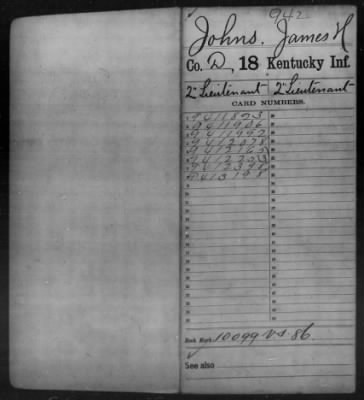 942
Johns, James H
Co. D, 18 Kentucky Inf.
2" Lieutenant 2" Lieutenant
CARD NUMBERS.
9411823
9411906
9411992
9412078
9412165
9412253
9412398
9413198
Book Mark: 10099 VS 86
See also